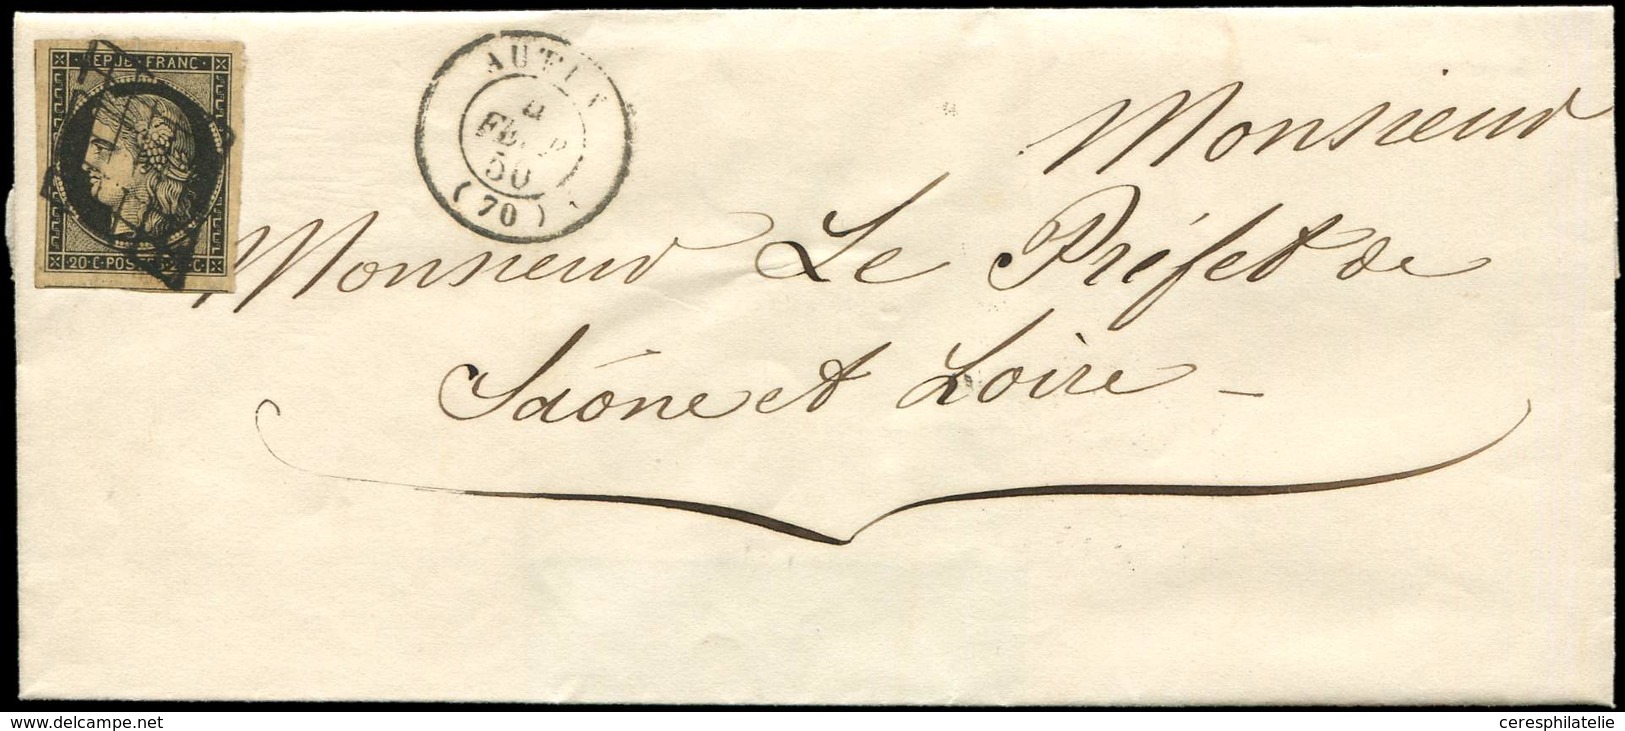 REPUB. FRANC.
20. C. POSTES 20. C
AUTUN
FEVR
50
(70)
Monsieur
Monsieur Le Préfet de
Saône et Loire -
www.delcampe.net
ceresphilatelie